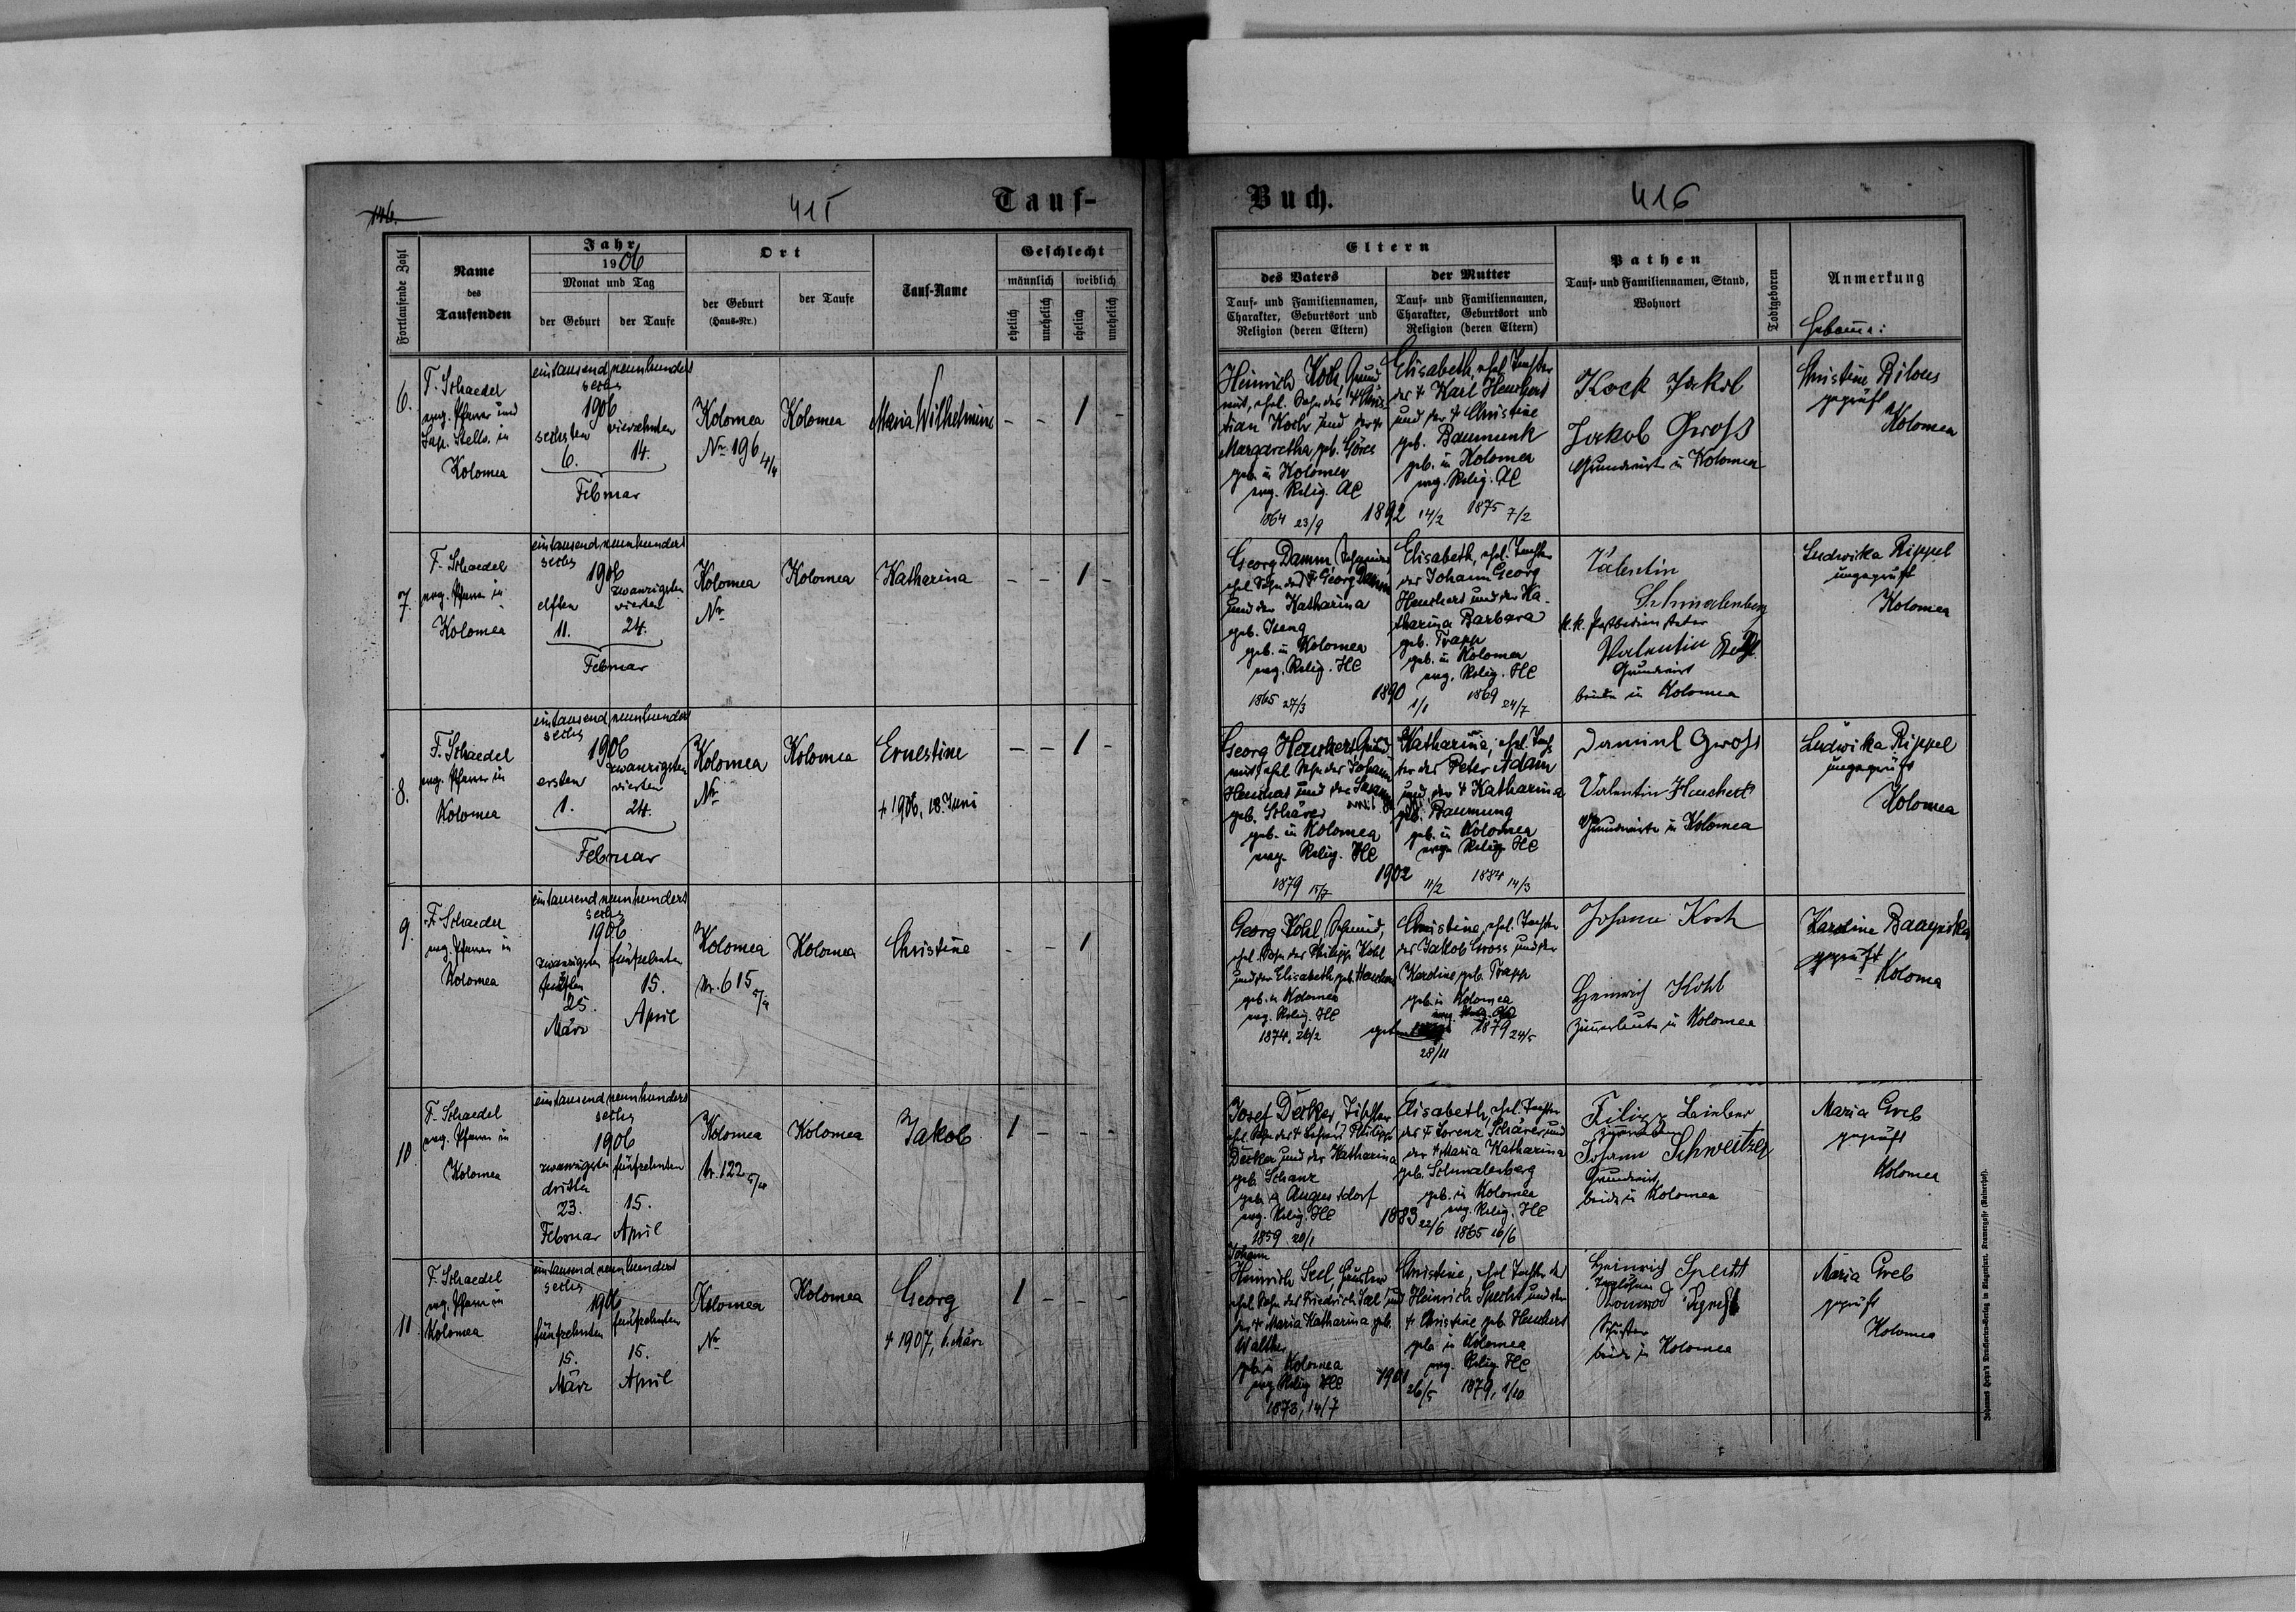 146.
415
Tauf-
Fortlaufende Zahl
Name
des
Taufenden
Jahr
1906
Monat und Tag
der Geburt
der Taufe
Ort
der Geburt
(Haus-Nr.)
der Taufe
Tauf-Name
Geschlecht
männlich
weiblich
ehelich
unehelich
ehelich
unehelich
6.
F. Schaedel
evg. Pfarrer und
Sup. Stellv. in
Kolomea
eintausend neunhundert
sechs
1906
sechsten vierzehnten
6. 14.
Februar
Kolomea
Nr. 196 4/4
Kolomea
Maria Wilhelmine
- - 1 -
7.
F. Schaedel
evg. Pfarrer in
Kolomea
eintausend neunhundert
sechs
1906
elften
zwanzigsten
vierten
11. 24.
Februar
Kolomea
Nr.
Kolomea
Katharina
- - 1 -
8.
F. Schaedel
evg. Pfarrer in
Kolomea
eintausend neunhundert
sechs
1906
ersten
zwanzigsten
vierten
1. 24.
Februar
Kolomea
Nr.
Kolomea
Ernestine
† 1906, 18. Juni
- - 1 -
9.
F. Schaedel
evg. Pfarrer in
Kolomea
eintausend neunhundert
sechs
1906
zwanzigsten fünfzehnten
fünften
25. 15.
März April
Kolomea
Nr. 615
Kolomea
Christine
- - 1
10
F. Schaedel
evg. Pfarrer in
Kolomea
eintausend neunhundert
sechs
1906
zwanzigsten fünfzehnten
dritten
23. 15.
Februar April
Kolomea
Nr. 122
Kolomea
Jakob
1 - - -
11
F. Schaedel
evg. Pfarrer in
Kolomea
eintausend neunhundert
sechs
1906
fünfzehnten fünfzehnten
15. 15.
März April
Kolomea
Nr.
Kolomea
Georg
† 1907, 6. März
1 - - -
Buch.
416
Eltern
des Vaters
Tauf- und Familiennamen,
Charakter, Geburtsort und
Religion (deren Eltern)
der Mutter
Tauf- und Familiennamen,
Charakter, Geburtsort und
Religion (deren Eltern)
Pathen
Tauf- und Familiennamen, Stand,
Wohnort
Todtgeboren
Anmerkung
Hebamme:
Heinrich Koch, Grund
wirt, ehel. Sohn des † Chris
tian Koch und der †
Margaretha geb. Göres
geb. in Kolomea
evg. Relig. AC
1864 23/9
1892 14/2
Elisabeth, ehel. Tochter
des † Karl Heuchert
und der † Christine
geb. Baumunk
geb. in Kolomea
evg. Relig. AC
1875 7/2
Kock Jakob
Jakob Gross
Grundwirte in Kolomea
Christine Bilous
geprüft
Kolomea
Georg Damm,
ehel. Sohn des † Georg Damm
und der Katharina
geb. Iseng
geb. in Kolomea
evg. Relig. HC
1865 27/3
1890 1/1
Elisabeth, ehel. Tochter
des Johann Georg
Heuchert und der Ka-
tharina Barbara
geb. Trapp
geb. in Kolomea
evg. Relig. HC
1869 24/7
Valentin
Schmalenberg
k. k. Postbediensteter
Valentin
Grundwirt
beide in Kolomea
Ludwika Rippel
ungeprüft
Kolomea
Georg Heuchert, Grund
wirt, ehel. Sohn des Johann
Heuchert und der
geb. Schärer
geb. in Kolomea
evg. Relig. HC
1879 15/7
1902 11/2
Katharina, ehel. Toch
ter des Peter Adam
und der † Katharina
geb. Baumung
geb. in Kolomea
evg. Relig. HC
1884 14/3
Daniel Gross
Valentin Heuchert
Grundwirte in Kolomea
Ludwika Rippel
ungeprüft
Kolomea
Georg Kohl, Schmied,
ehel. Sohn des Philipp Kohl
und der Elisabeth geb. Heuchert
geb. in Kolomea
evg. Relig. HC
1874, 26/2
28/11
Christine, ehel. Tochter
des Jakob Gross und der
Karoline geb. Trapp
geb. in Kolomea
1879 24/5
Johann Koch
Heinrich Kohl
Zimmerleute in Kolomea
Karoline
geprüft
Koloma
Josef Decker, Tischler
ehel. Sohn des † Philipp
Decker und der Katharina
geb. Schanz
geb. in Augustdorf
evg. Relig. HC
1859 20/1
1883 22/6
Elisabeth, ehel. Tochter
des † Lorenz Schärer und
der † Maria Katharina
geb. Schmalenberg
geb. in Kolomea
evg. Relig. HC
1865 16/6
Filipp
Johann Schweitzer
Grundwirt
beide in Kolomea
Maria Greb
geprüft
Kolomea
Johann
Heinrich Seel,
ehel. Sohn des Friedrich Seel und
der † Maria Katharina geb.
Walther
geb. in Kolomea
evg. Relig. HC
1873, 14/7
1901 26/5
Christine, ehel. Tochter des
Heinrich Specht und der
† Christine geb. Heuchert
geb. in Kolomea
evg. Relig. HC
1879, 1/10
Heinrich Specht
Konrad
Schuster
beide in Kolomea
Maria Greb
geprüft
Kolomea